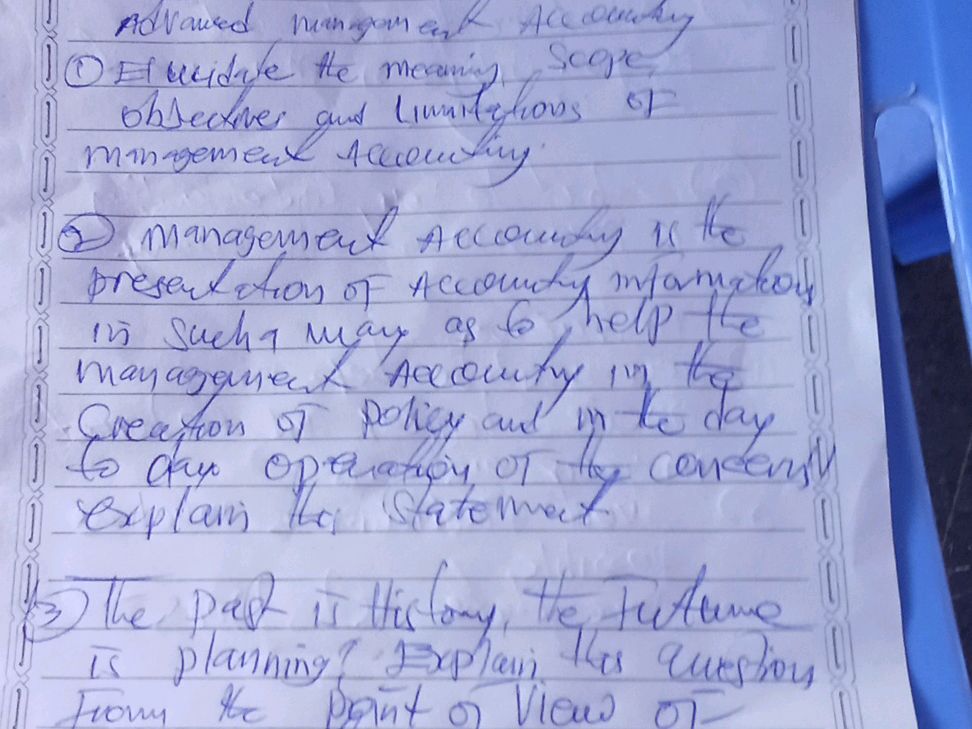 Advanced management Accounting
① Elucidate the meaning, Scope,
objectives and Limitations of
management Accounting.
② management Accounting is the
presentation of Accounting information
in such a way as to help the
management Accounting in the
Creation of policy and in the day
to day operation of the concern"
explain this statement
③ The past is History, the Future
is planning? Explain this question
From the point of View of